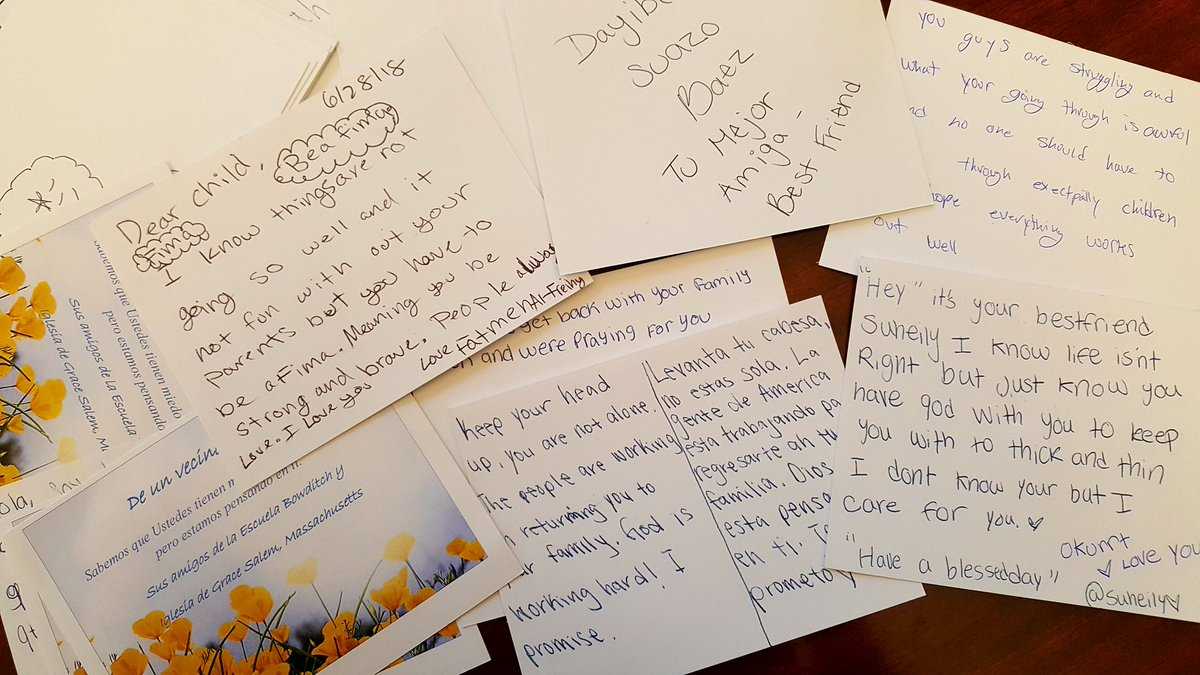 th
6/28/18
Dear child, Be a Fima
Fima
I know things are not
going so well and it
not fun with out your
parents but you have to
be a Fima. Meaning you be
strong and brave. People always
Love. I Love you
Love Fatmeh
Dayib
Suazo
Baez
TU Mejor
Amiga -
Best Friend
you
guys are struggling and
what your going through is awful
no one should have to
through exectpally children
hope everything works
out well
get back with your Family
and were Praying For you
Keep your head
up, you are not alone.
The people are working
returning you to
family. God is
working hard! I
promise.
Levanta tu cabesa,
no estas sola. La
gente de America
esta trabajando pa
regresarte an tu
familia. Dios
esta pensa
en ti. 
prometo
"Hey" it's your bestfriend
Suheily I know life isn't
Right but just know you
have god with you to keep
you with to thick and thin
I dont know your but I
care for you.
Okurrt
I Love you
"Have a blessedday"
@suheily
que Ustedes tienen miedo
pero estamos pensando
Sus amigos de la Escuela
Iglesia de Grace Salem, M
De un vecin
Sabemos que Ustedes tienen m
pero estamos pensando en
Sus amigos de la Escuela Bowditch y
Iglesia de Grace Salem, Massachusetts